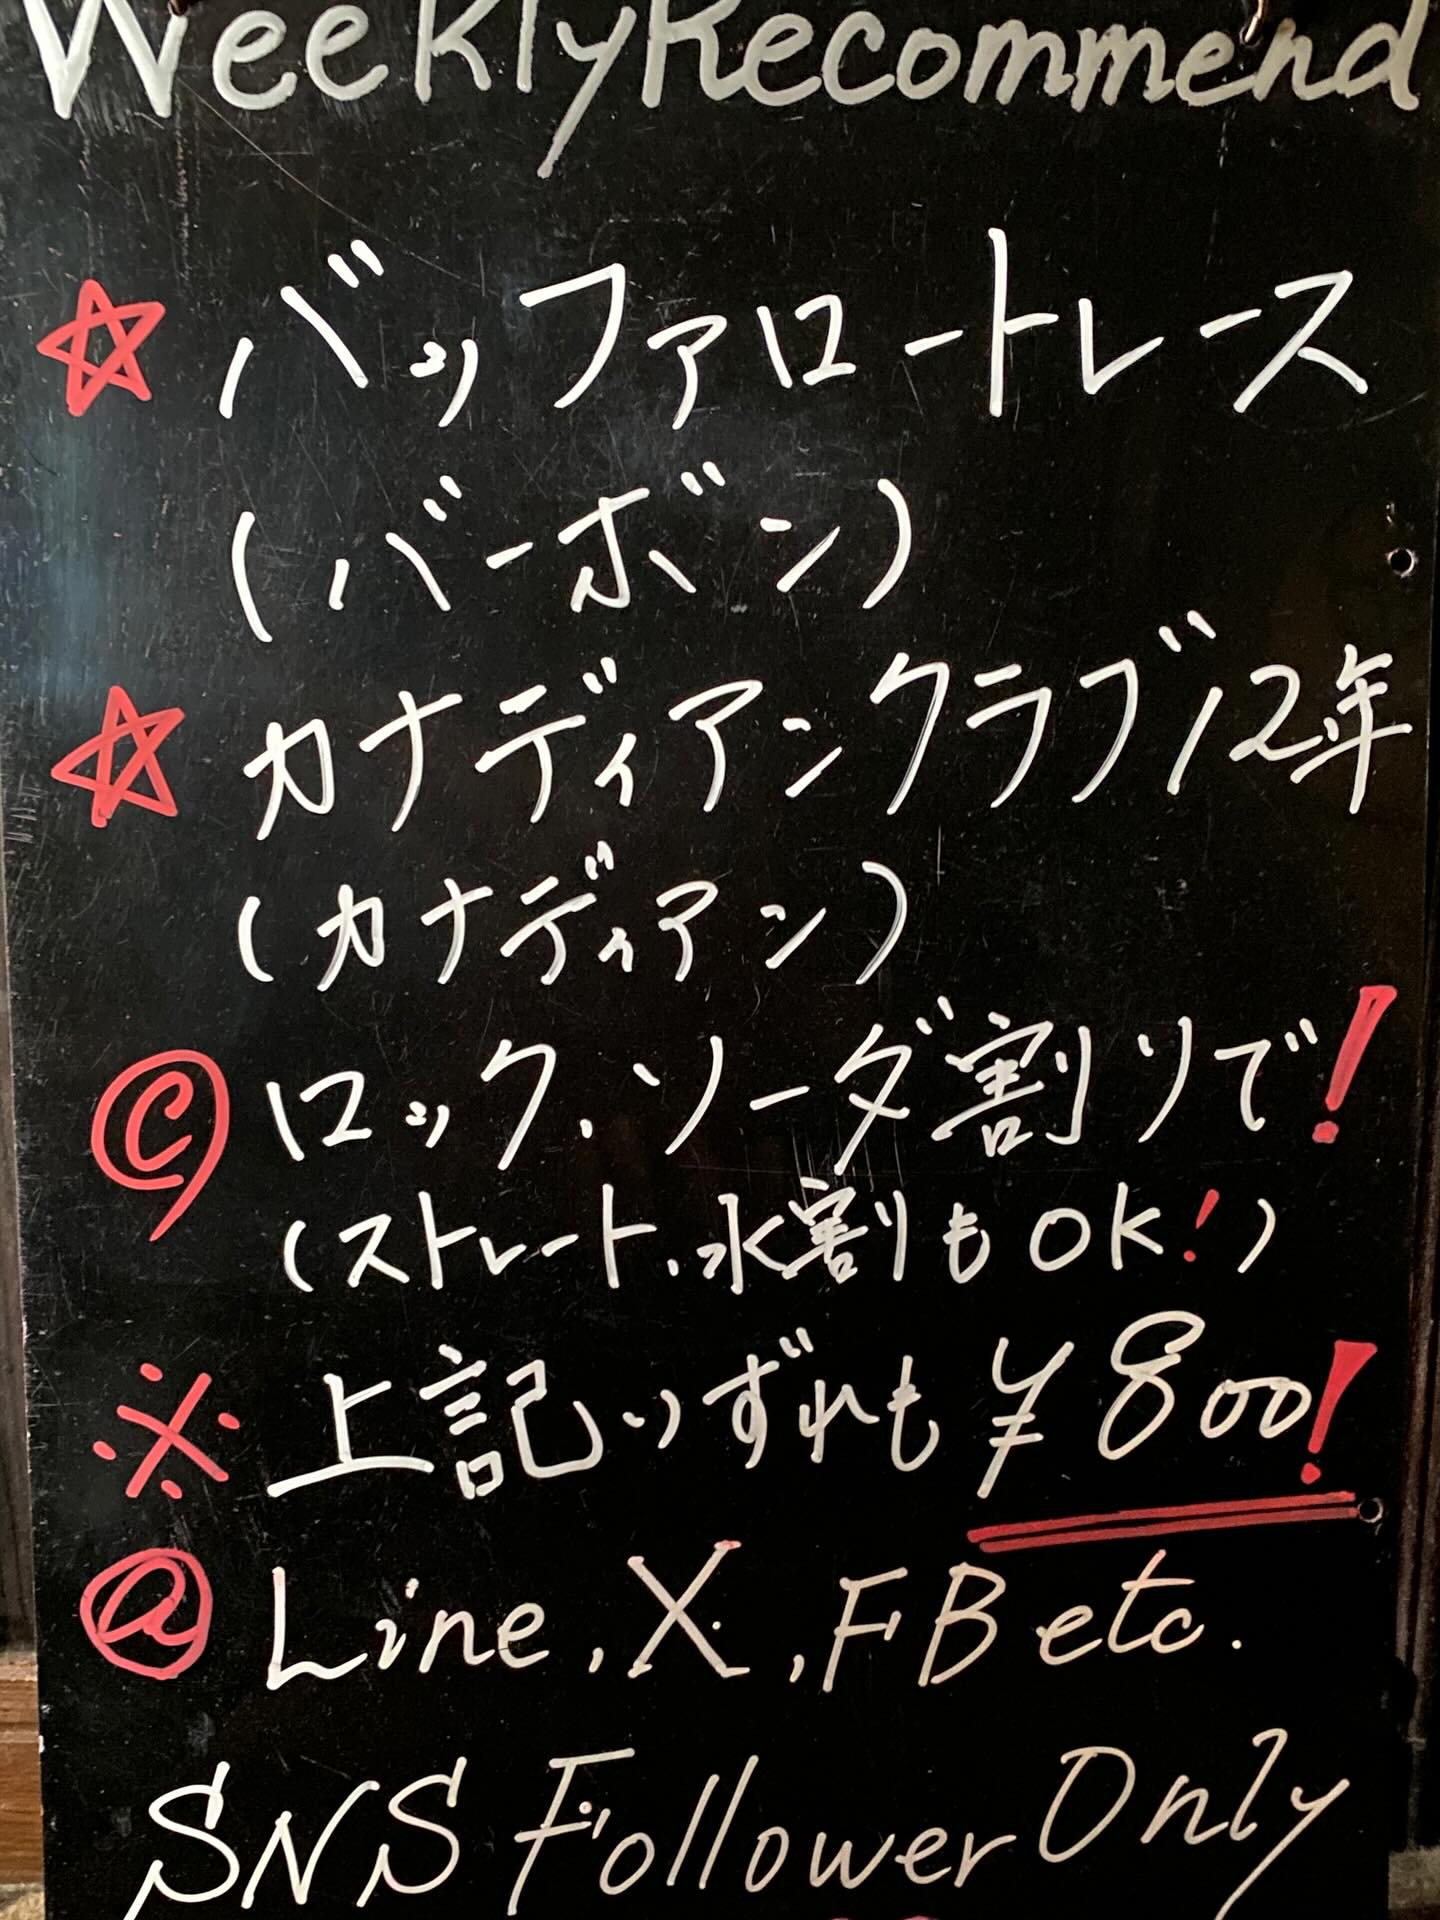 WeeklyRecommend
☆ バッファロートレース
(バーボン)
☆ カナディアンクラブ12年
(カナディアン)
© ロック、ソーダ割りで!
(ストレート、水割りもOK!)
※ 上記いずれも ¥800!
@ Line, X, FB etc.
SNS Follower Only